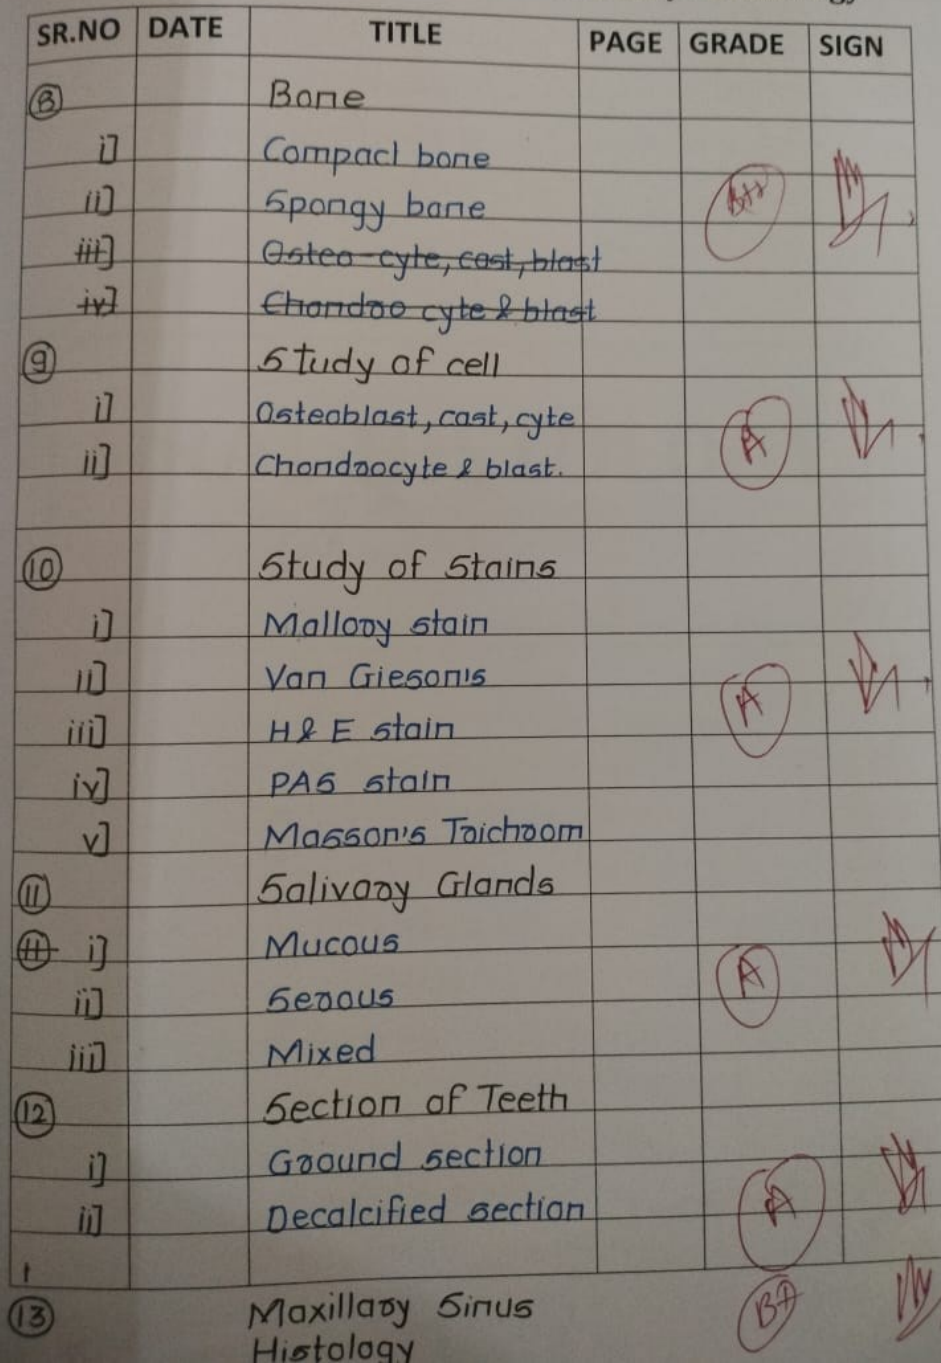 SR.NO DATE TITLE PAGE GRADE SIGN
8 Bone
i] Compact bone
ii] Spongy bone
iii] Osteo-cyte, cast, blast
iv] Chondro cyte & blast
9 Study of cell
i] Osteoblast, cast, cyte A
ii] Chondrocyte & blast.
10 Study of Stains
i] Mallory stain
ii] Van Gieson's A
iii] H & E stain
iv] PAS stain
v] Masson's Trichrom
11 Salivary Glands
11 i] Mucous A
ii] Serous
iii] Mixed
12 Section of Teeth
i] Ground section
ii] Decalcified section A
13 Maxillary Sinus B+
Histology